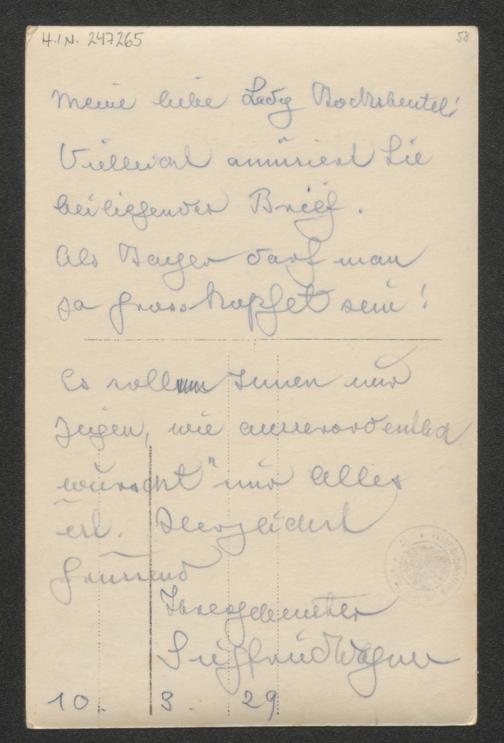 H.I.N. 247265
50
Meine liebe Lady Bocksbeutel!
Vielleicht amüsiert Sie
beiliegender Brief.
Als Bayer darf man
ja grosskopfet sein!
Es soll Ihnen nur
zeigen, wie ausserordentlich
"wurscht" mir Alles
ist. Herzlichst
grüssend
Ihr ergebenster
Siegfried Wagner
10. 3. 29